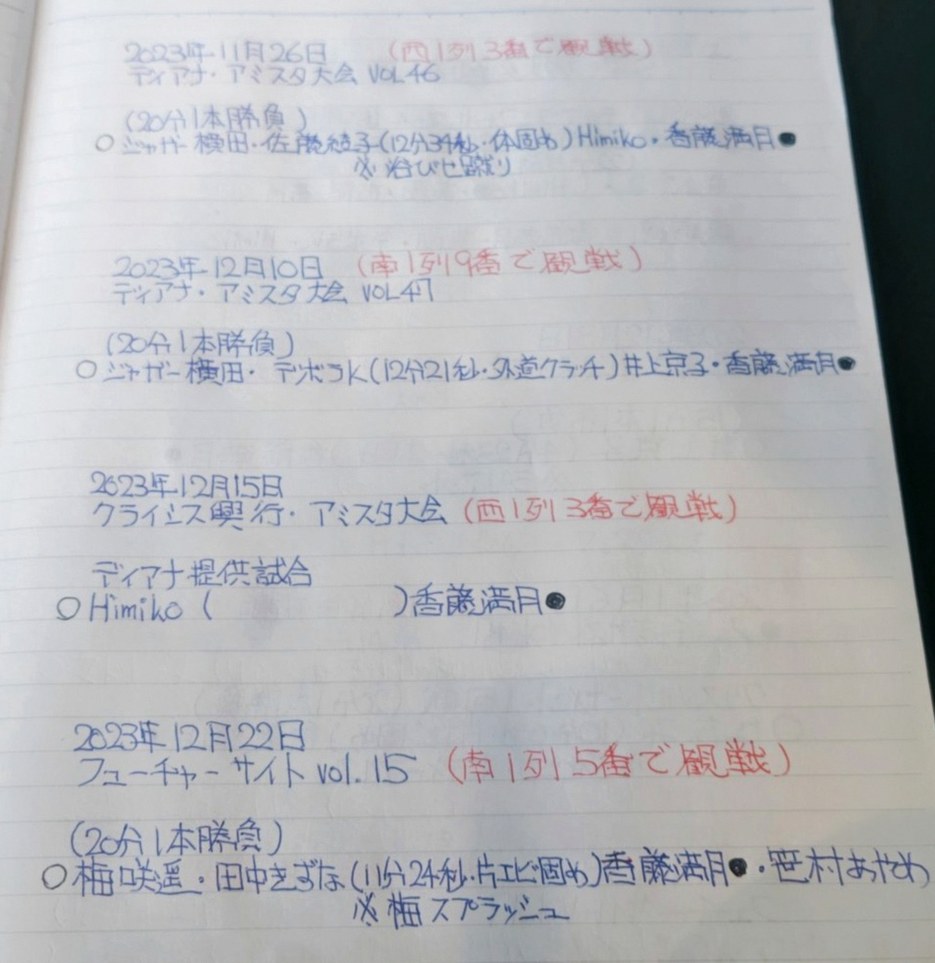 2023年11月26日 (西1列3番で観戦)
ディアナ・アミスタ大会 VOL.46
(20分1本勝負)
○ジャガー横田・佐藤綾子(12分34秒・体固め)Himiko・香藤満月●
※浴びせ蹴り
2023年12月10日 (南1列9番で観戦)
ディアナ・アミスタ大会 VOL47
(20分1本勝負)
○ジャガー横田・デボラK(12分21秒・外道クラッチ)井上京子・香藤満月●
2023年12月15日
クライシス興行・アミスタ大会 (西1列3番で観戦)
ディアナ提供試合
○Himiko ( )香藤満月●
2023年12月22日
フューチャーサイト vol.15 (南1列5番で観戦)
(20分1本勝負)
○梅咲遥・田中きずな(11分24秒・片エビ固め)香藤満月●・笹村あやめ
※梅スプラッシュ